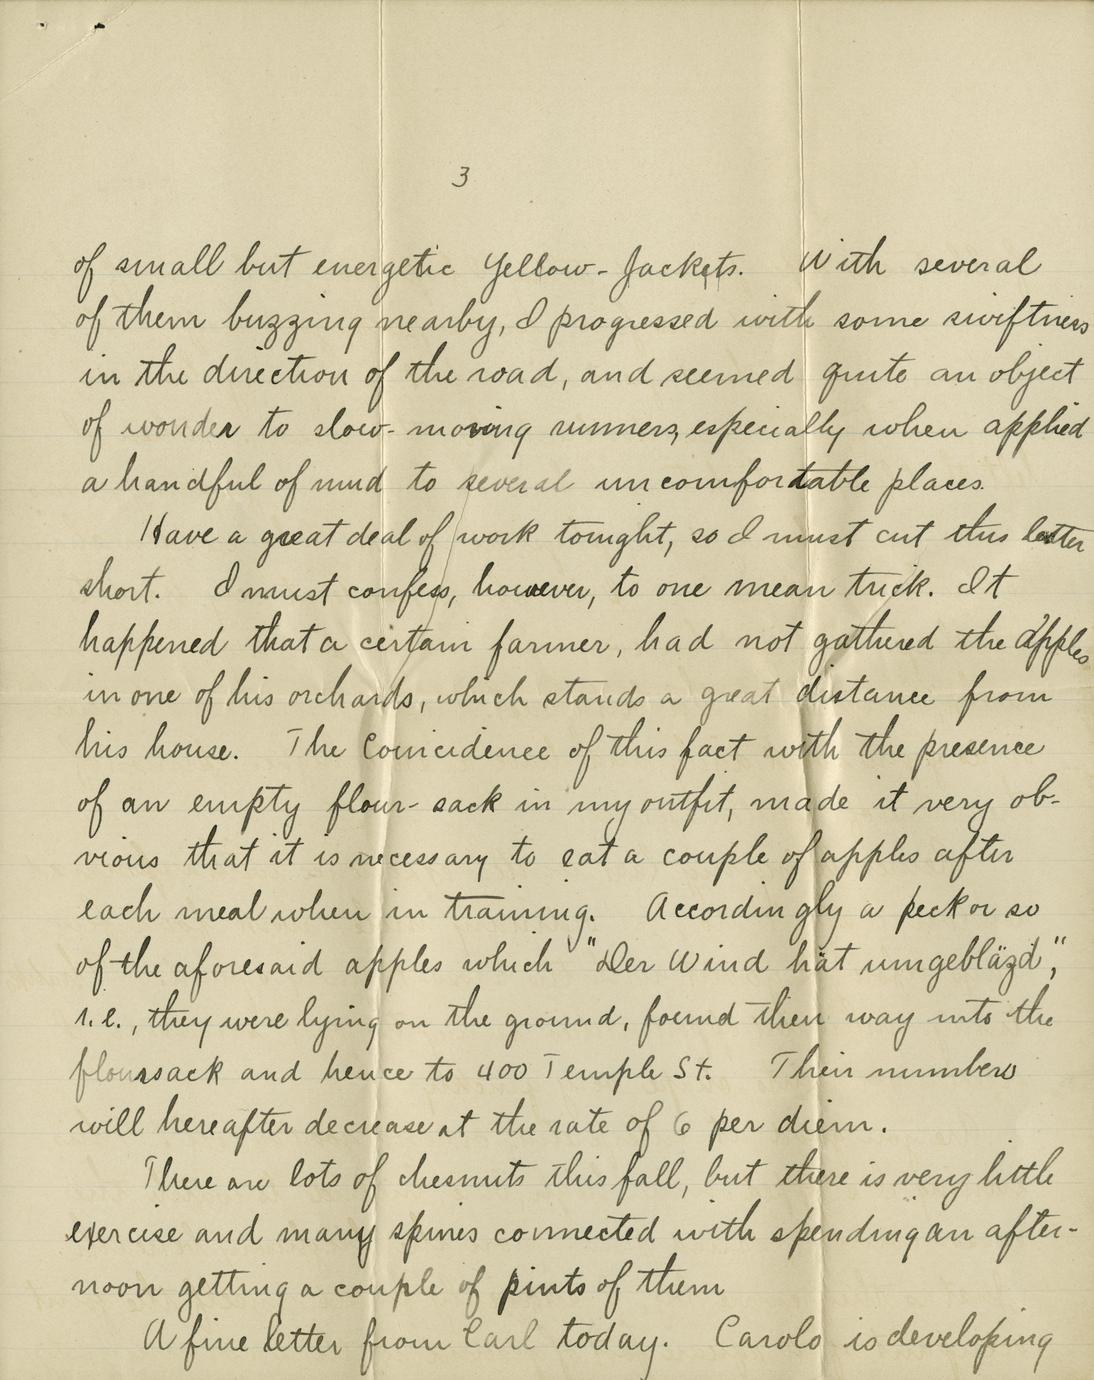 3
of small but energetic Yellow-Jackets. With several
of them buzzing nearby, I progressed with some swiftness
in the direction of the road, and seemed quite an object
of wonder to slow-moving runners, especially when applied
a handful of mud to several uncomfortable places.
Have a great deal of work tonight, so I must cut this letter
short. I must confess, however, to one mean trick. It
happened that a certain farmer, had not gathered the apples
in one of his orchards, which stands a great distance from
his house. The Coincidence of this fact with the presence
of an empty flour-sack in my outfit, made it very ob-
vious that it is necessary to eat a couple of apples after
each meal when in training. Accordingly a peck or so
of the aforesaid apples which "Der Wind hät umgebläzd",
i.e., they were lying on the ground, found their way into the
floursack and hence to 400 Temple St. Their numbers
will hereafter decrease at the rate of 6 per diem.
There are lots of chesnuts this fall, but there is very little
exercise and many spines connected with spending an after-
noon getting a couple of pints of them
A fine letter from Carl today. Carolo is developing